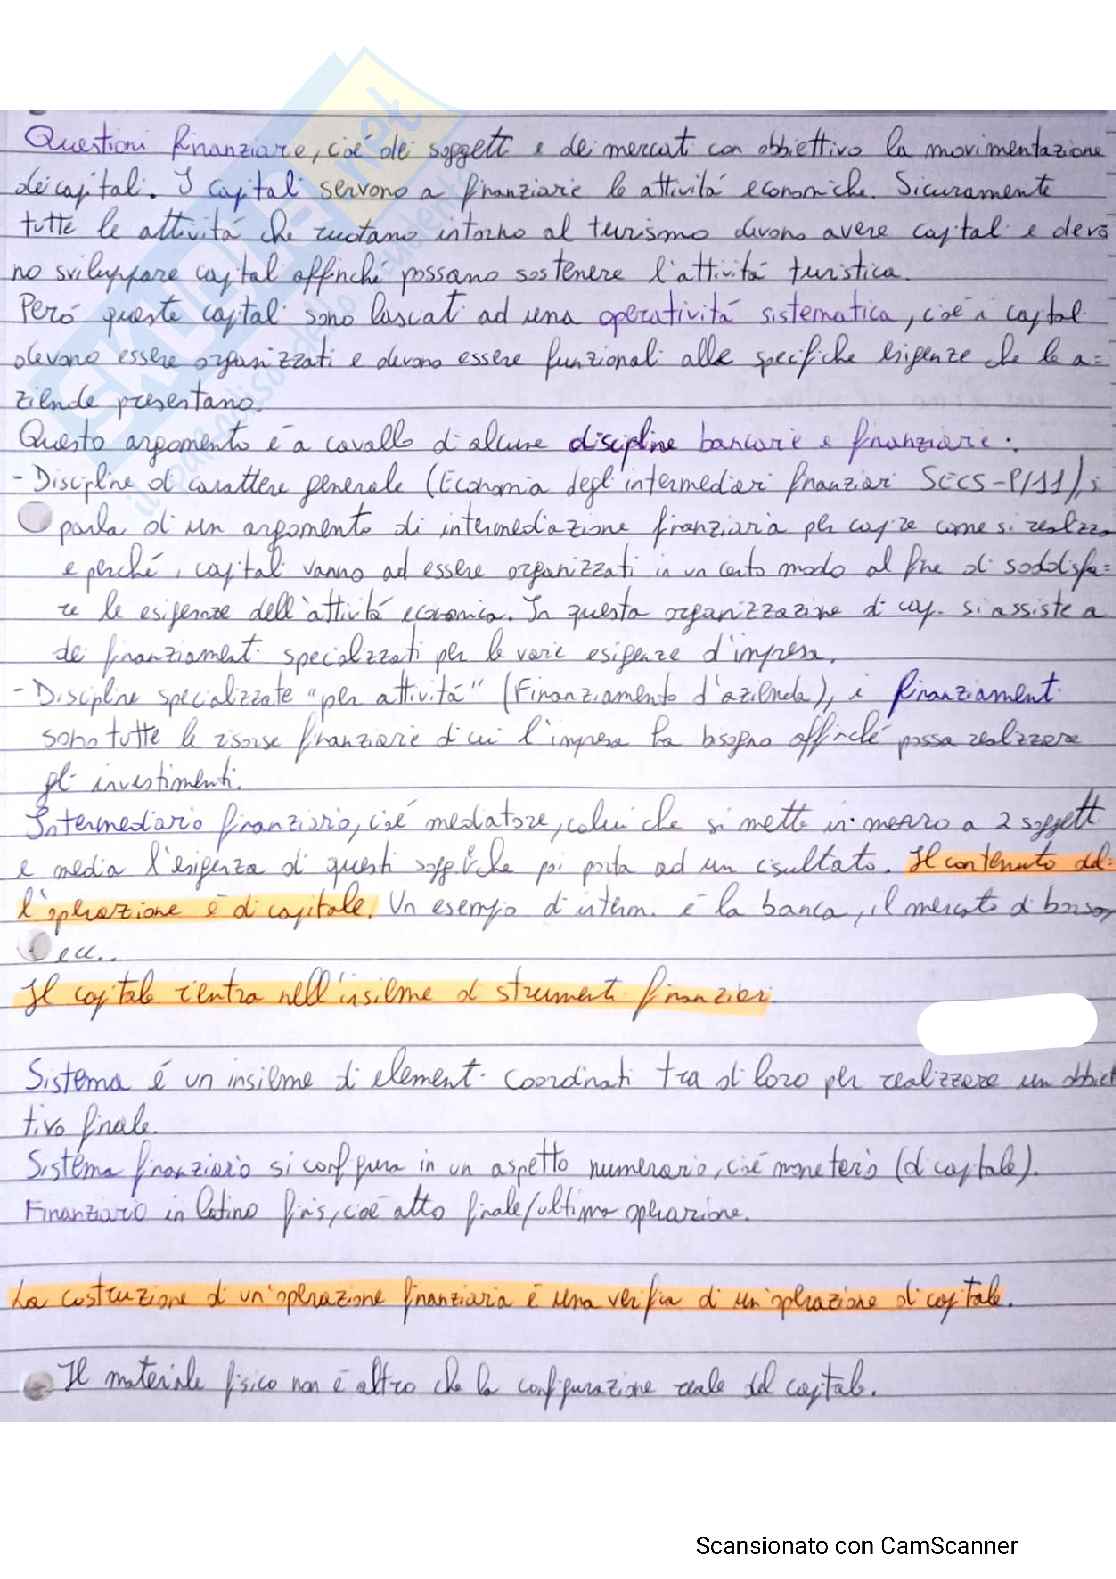 Questioni finanziarie, cioé dei soggetti e dei mercati con obbiettivo la movimentazione
dei capitali. I capitali servono a finanziare le attivitá economiche. Sicuramente
tutte le attivitá che ruotano intorno al turismo devono avere capitali e devo
no sviluppare capitali affinché possano sostenere l'attivitá turistica.
Peró queste capitali sono lasciati ad una operativitá sistematica, cioè i capitali
devono essere organizzati e devono essere funzionali alle specifiche esigenze che le a=
ziende presentano.
Questo argomento é a cavallo di alcune discipline bancarie e finanziarie.
- Discipline di carattere generale (Economia degli intermediari finanziari SECS-P/11), si
parla di un argomento di intermediazione finanziaria per capire come si realizza
e perché i capitali vanno ad essere organizzati in un certo modo al fine di soddisfa=
re le esigenze dell'attivitá economica. In questa organizzazione di cap. si assiste a
dei finanziamenti specializzati per le varie esigenze d'impresa.
- Discipline specializzate "per attivitá" (Finanziamento d'azienda), i finanziamenti
sono tutte le risorse finanziarie di cui l'impresa ha bisogno affinché possa realizzare
gli investimenti.
Intermediario finanziario, cioé mediatore, colui che si mette in mezzo a 2 soggetti
e media l'esigenza di questi sogg. che poi porta ad un risultato. Il contenuto del-
l'operazione é di capitale. Un esempio di interm. é la banca, il mercato di borsa,
ecc..
Il capitale rientra nell'insieme di strumenti finanziari
Sistema é un insieme di elementi coordinati tra di loro per realizzare un obbiet
tivo finale.
Sistema finanziario si configura in un aspetto numerario, cioé monetario (di capitale).
Finanziario in latino finis, cioé atto finale/ultima operazione.
La costruzione di un'operazione finanziaria é una verifica di un'operazione di capitale.
Il materiale fisico non é altro che la configurazione reale del capitale.
Scansionato con CamScanner
SKUOLA.net